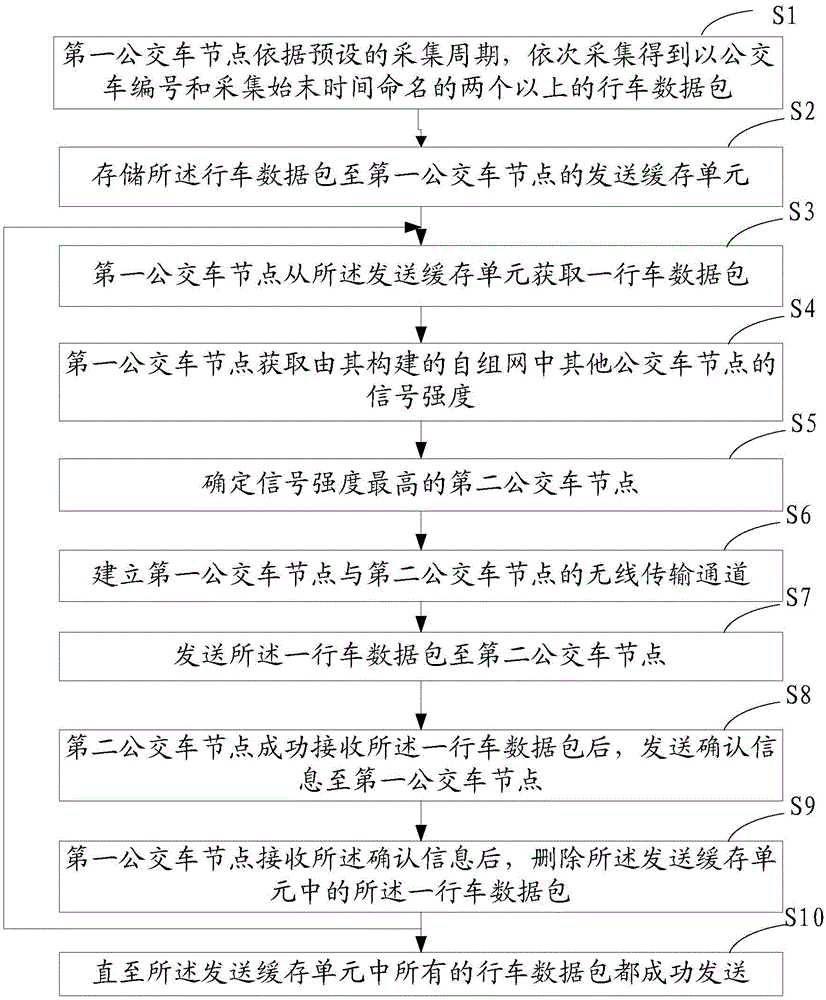 S1
第一公交车节点依据预设的采集周期，依次采集得到以公交
车编号和采集始末时间命名的两个以上的行车数据包
S2
存储所述行车数据包至第一公交车节点的发送缓存单元
S3
第一公交车节点从所述发送缓存单元获取一行车数据包
S4
第一公交车节点获取由其构建的自组网中其他公交车节点的
信号强度
S5
确定信号强度最高的第二公交车节点
S6
建立第一公交车节点与第二公交车节点的无线传输通道
S7
发送所述一行车数据包至第二公交车节点
S8
第二公交车节点成功接收所述一行车数据包后，发送确认信
息至第一公交车节点
S9
第一公交车节点接收所述确认信息后，删除所述发送缓存单
元中的所述一行车数据包
S10
直至所述发送缓存单元中所有的行车数据包都成功发送